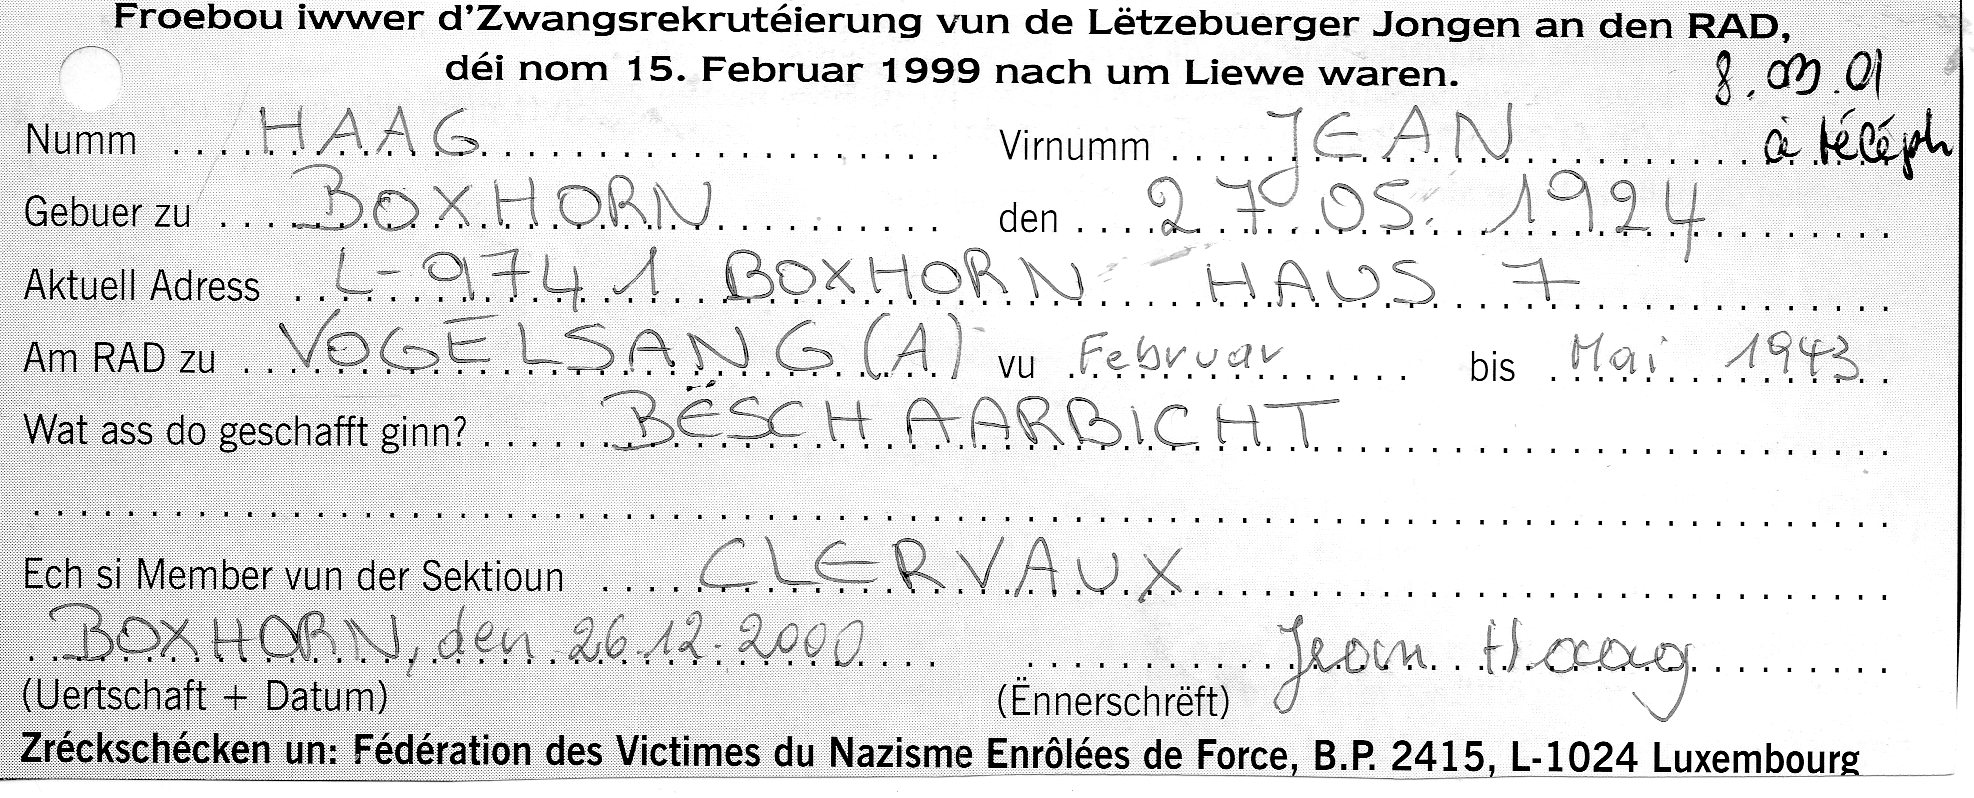 Froebou iwwer d'Zwangsrekrutéierung vun de Lëtzebuerger Jongen an den RAD,
déi nom 15. Februar 1999 nach um Liewe waren.
8.03.01
Numm HAAG Virnumm JEAN à téléph
Gebuer zu BOXHORN den 27 05. 1924
Aktuell Adress L-9741 BOXHORN HAUS 7
Am RAD zu VOGELSANG (A) vu Februar bis Mai 1943
Wat ass do geschafft ginn? BËSCH AARBICHT
Ech si Member vun der Sektioun CLERVAUX
BOXHORN, den 26.12.2000 Jean Haag
(Uertschaft + Datum) (Ënnerschrëft)
Zréckschécken un: Fédération des Victimes du Nazisme Enrôlées de Force, B.P. 2415, L-1024 Luxembourg